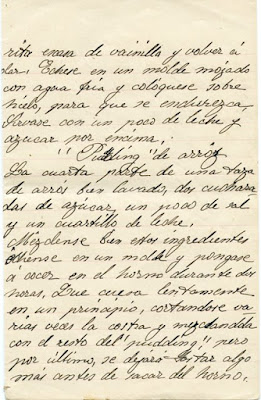 rita escasa de vainilla y volver á
dar. Echese en un molde mojado
con agua fria y colóquese sobre
hielo, para que se endurezca.
Sirvase con un poco de leche y
azucar por encima.
"Pudding" de arróz
La cuarta parte de una taza
de arros bien lavado, dos cuchara
das de azúcar, un poco de sal
y un cuartillo de leche.
Mézclense bien estos ingredientes
en un molde y pongase
á cocer en el horno durante dos
horas. Que cueza lentamente
en un principio, cortandose va
rias veces la costra y mezclandola
con el resto del "pudding" pero
por último, se dejará tostar algo
más antes de sacar del horno.